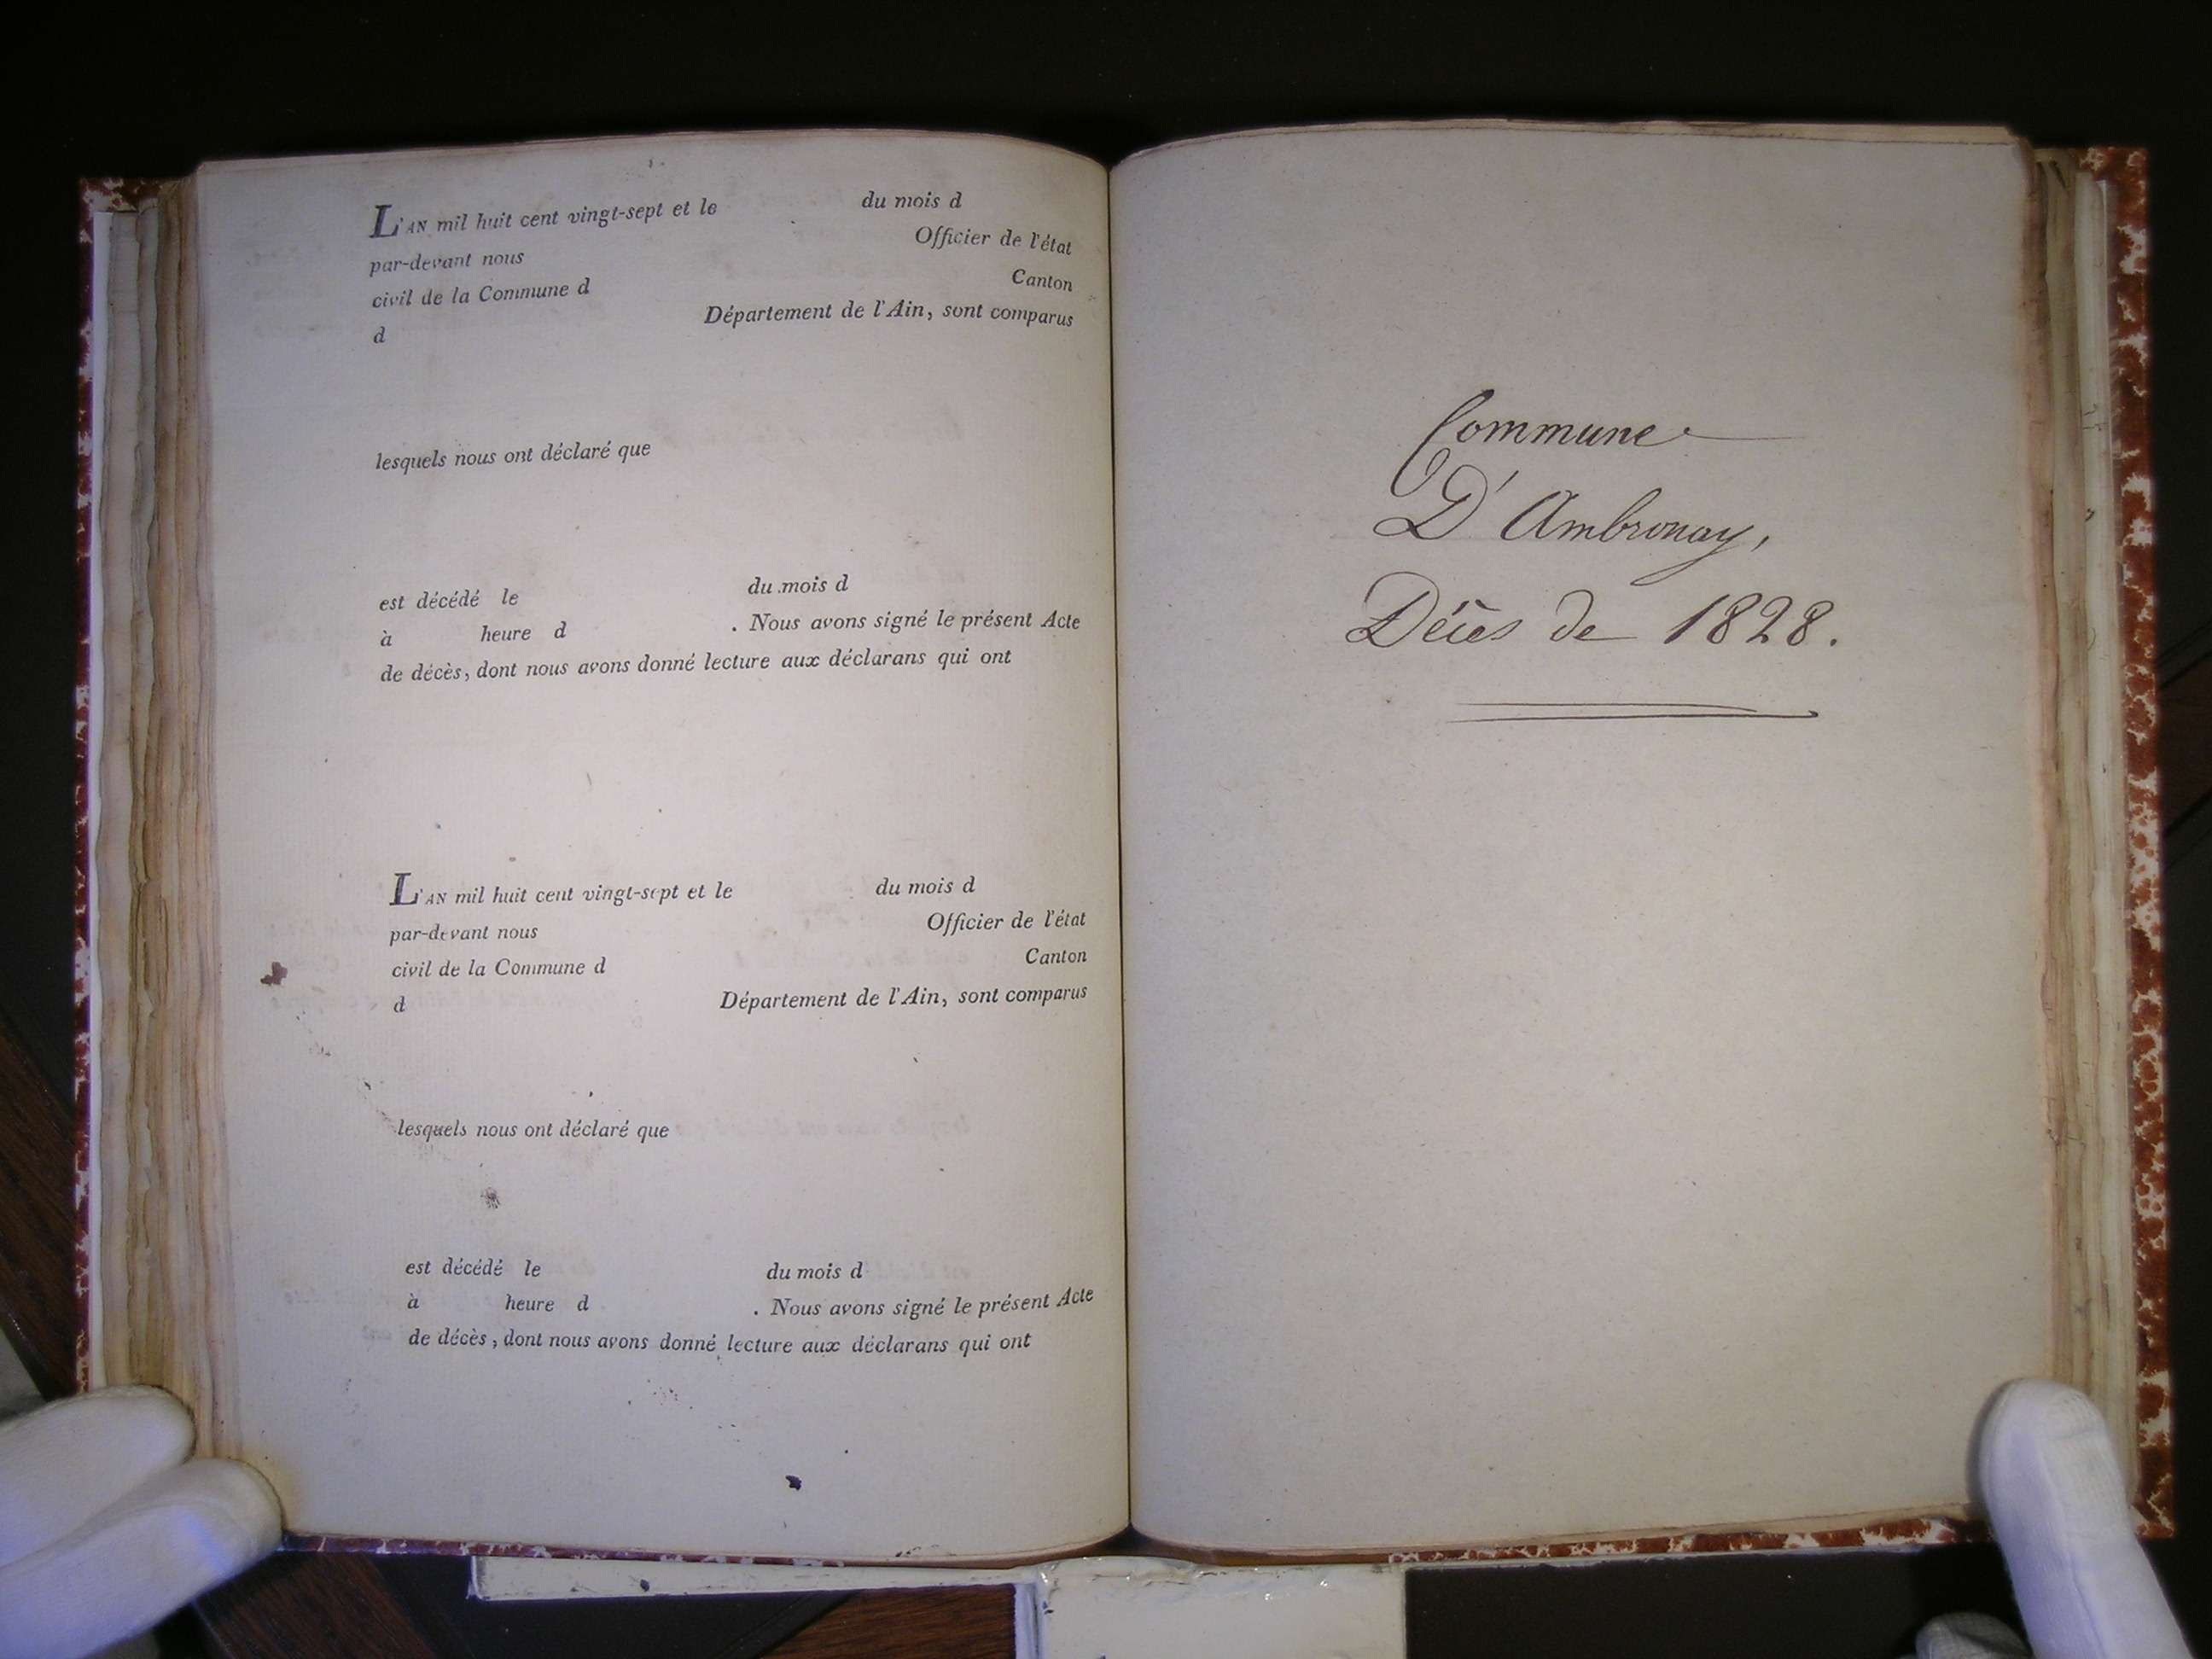 L'AN mil huit cent vingt-sept et le du mois d
par-devant nous Officier de l'état
civil de la Commune d Canton
d Département de l'Ain, sont comparus
lesquels nous ont déclaré que
est décédé le du mois d
à heure d . Nous avons signé le présent Acte
de décès, dont nous avons donné lecture aux déclarans qui ont
L'AN mil huit cent vingt-sept et le du mois d
par-devant nous Officier de l'état
civil de la Commune d Canton
d Département de l'Ain, sont comparus
lesquels nous ont déclaré que
est décédé le du mois d
à heure d . Nous avons signé le présent Acte
de décès, dont nous avons donné lecture aux déclarans qui ont
Commune
D'Ambronay,
Décès de 1828.